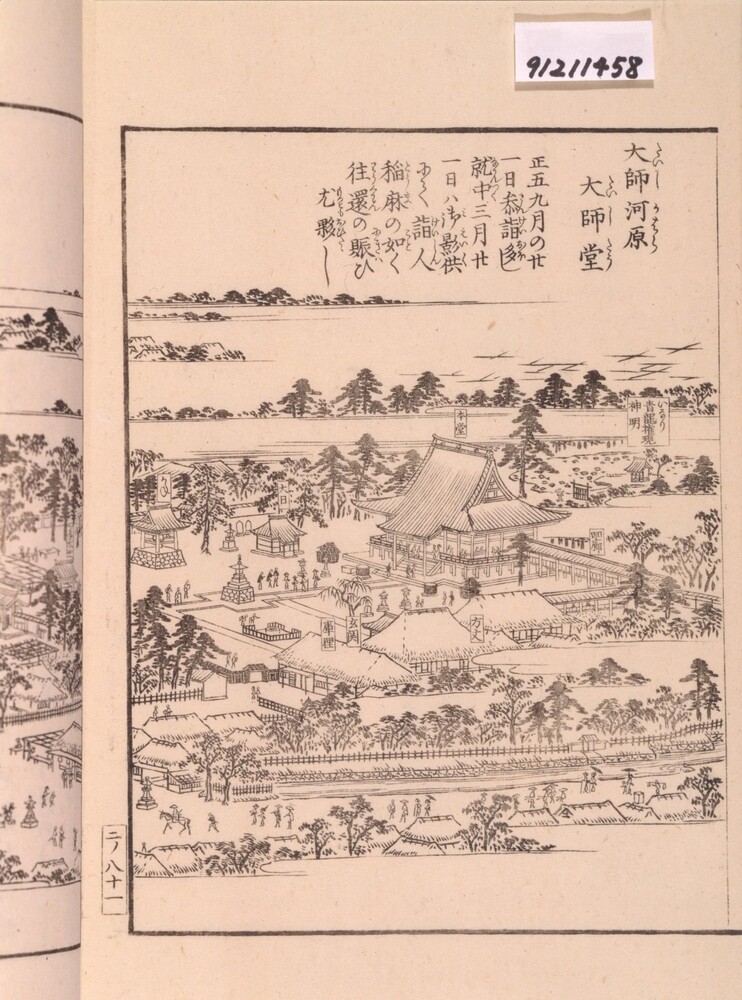 91211458
大師河原
大師堂
正五九月の廿
一日参詣多し
就中三月廿
一日ハ御影供
にて詣人
稲麻の如く
往還の賑ひ
尤夥し
本堂
青龍権現
神明
庫裡
玄関
二ノ八十一